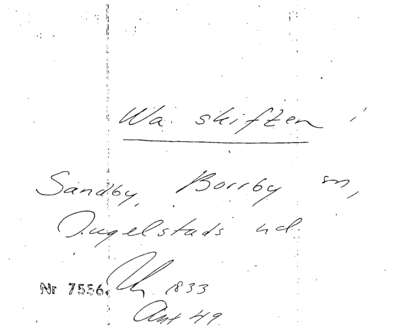 Wa. skiften i
Sandby, Borrby sn,
Ingelstads hd.
Nr 7556. 1833
Ant 49